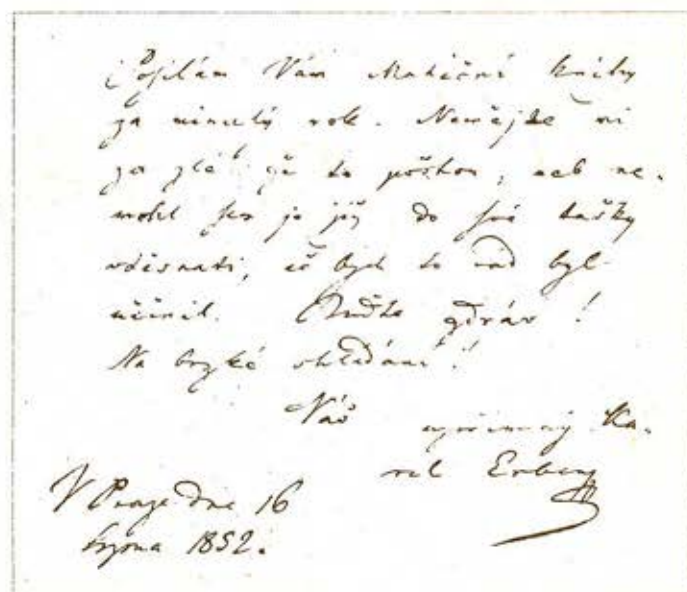 Posílám Vám Matiční knihy
za minulý rok. Nemějte mi
za zlé že to poštou, neb ne-
mohl jsem je již do své tašky
vtěsnati, ač bych to rád byl
učinil. Buďte zdráv!
Na brzké shledání!
Váš
upřímný Ka-
rel Erben
V Praze dne 16
srpna 1852.